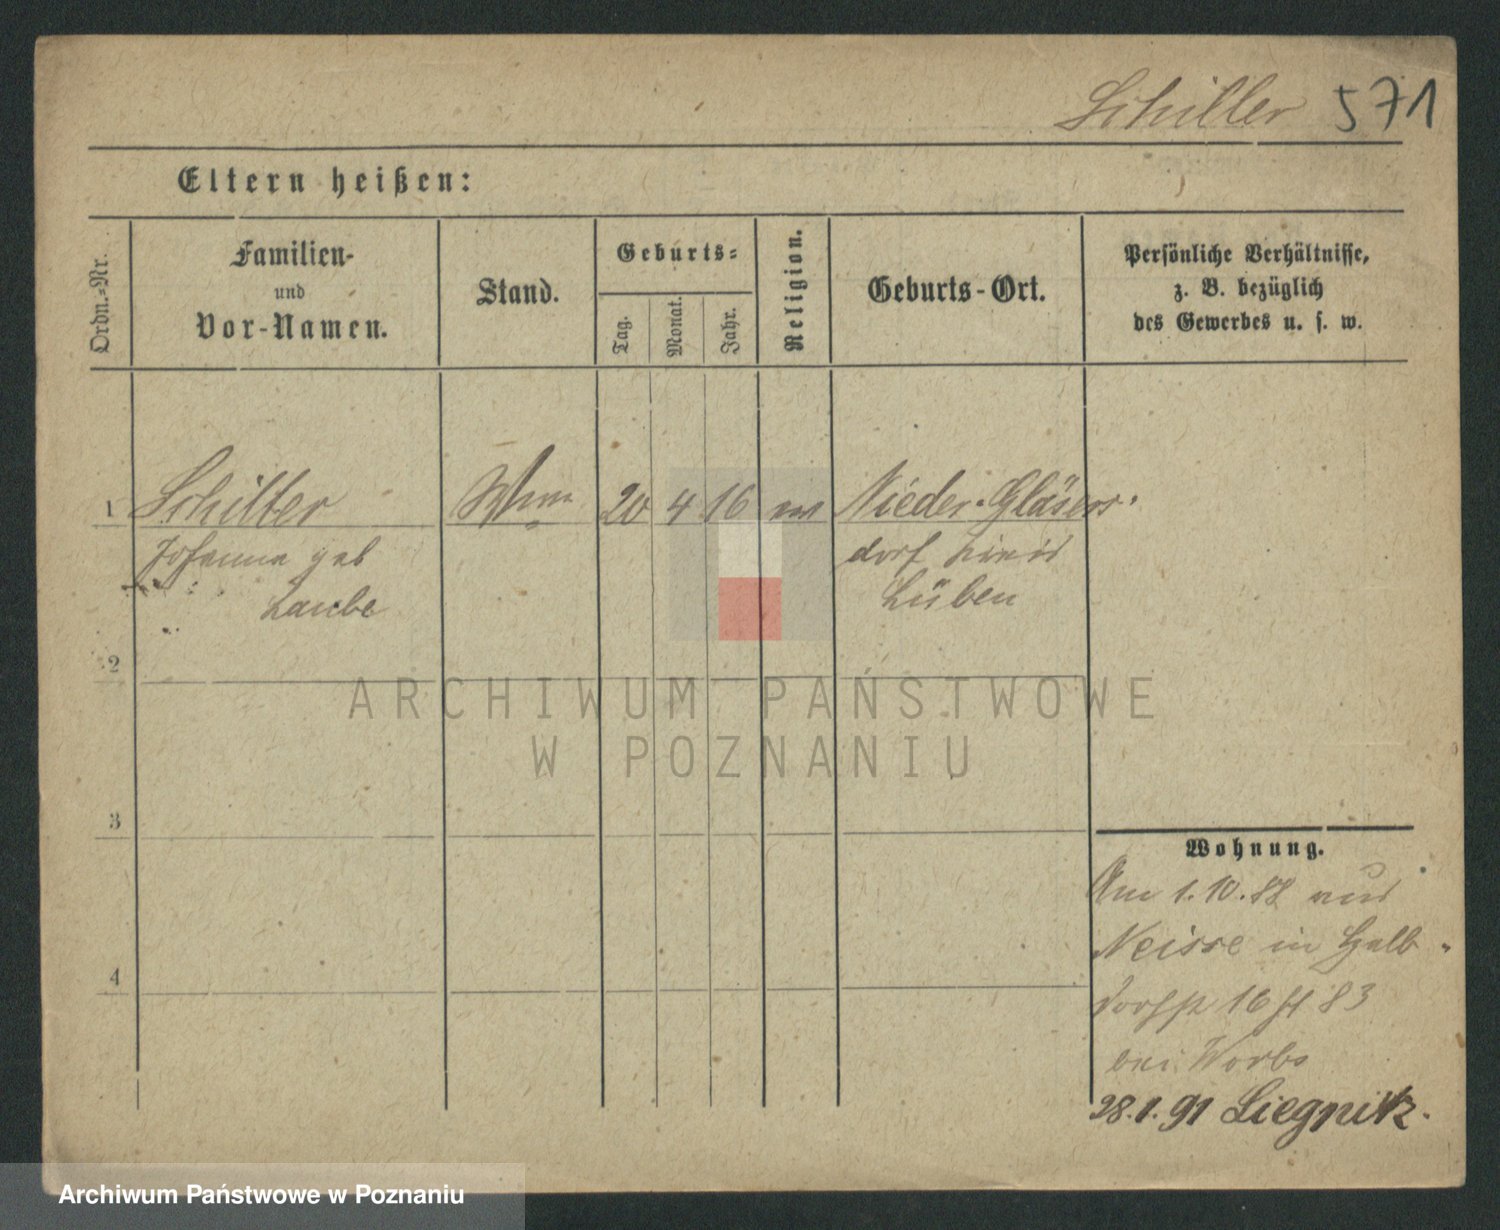 Schiller 571
Eltern heißen:
Ordn.=Nr.
Familien-
und
Vor-Namen.
Stand.
Geburts=
Tag.
Monat.
Jahr.
Religion.
Geburts-Ort.
Persönliche Verhältnisse,
z. B. bezüglich
des Gewerbes u. s. w.
1 Schiller 20 4 16 Nieder-Gläsers-
Johanna geb dorf
Laube Lüben
2
ARCHIWUM PAŃSTWOWE
W POZNANIU
3
4
Wohnung.
Am 1.10.88 aus
Neisse in Halb-
dorfstr 16
bei Worbs
28.1.91 Liegnitz.
Archiwum Państwowe w Poznaniu